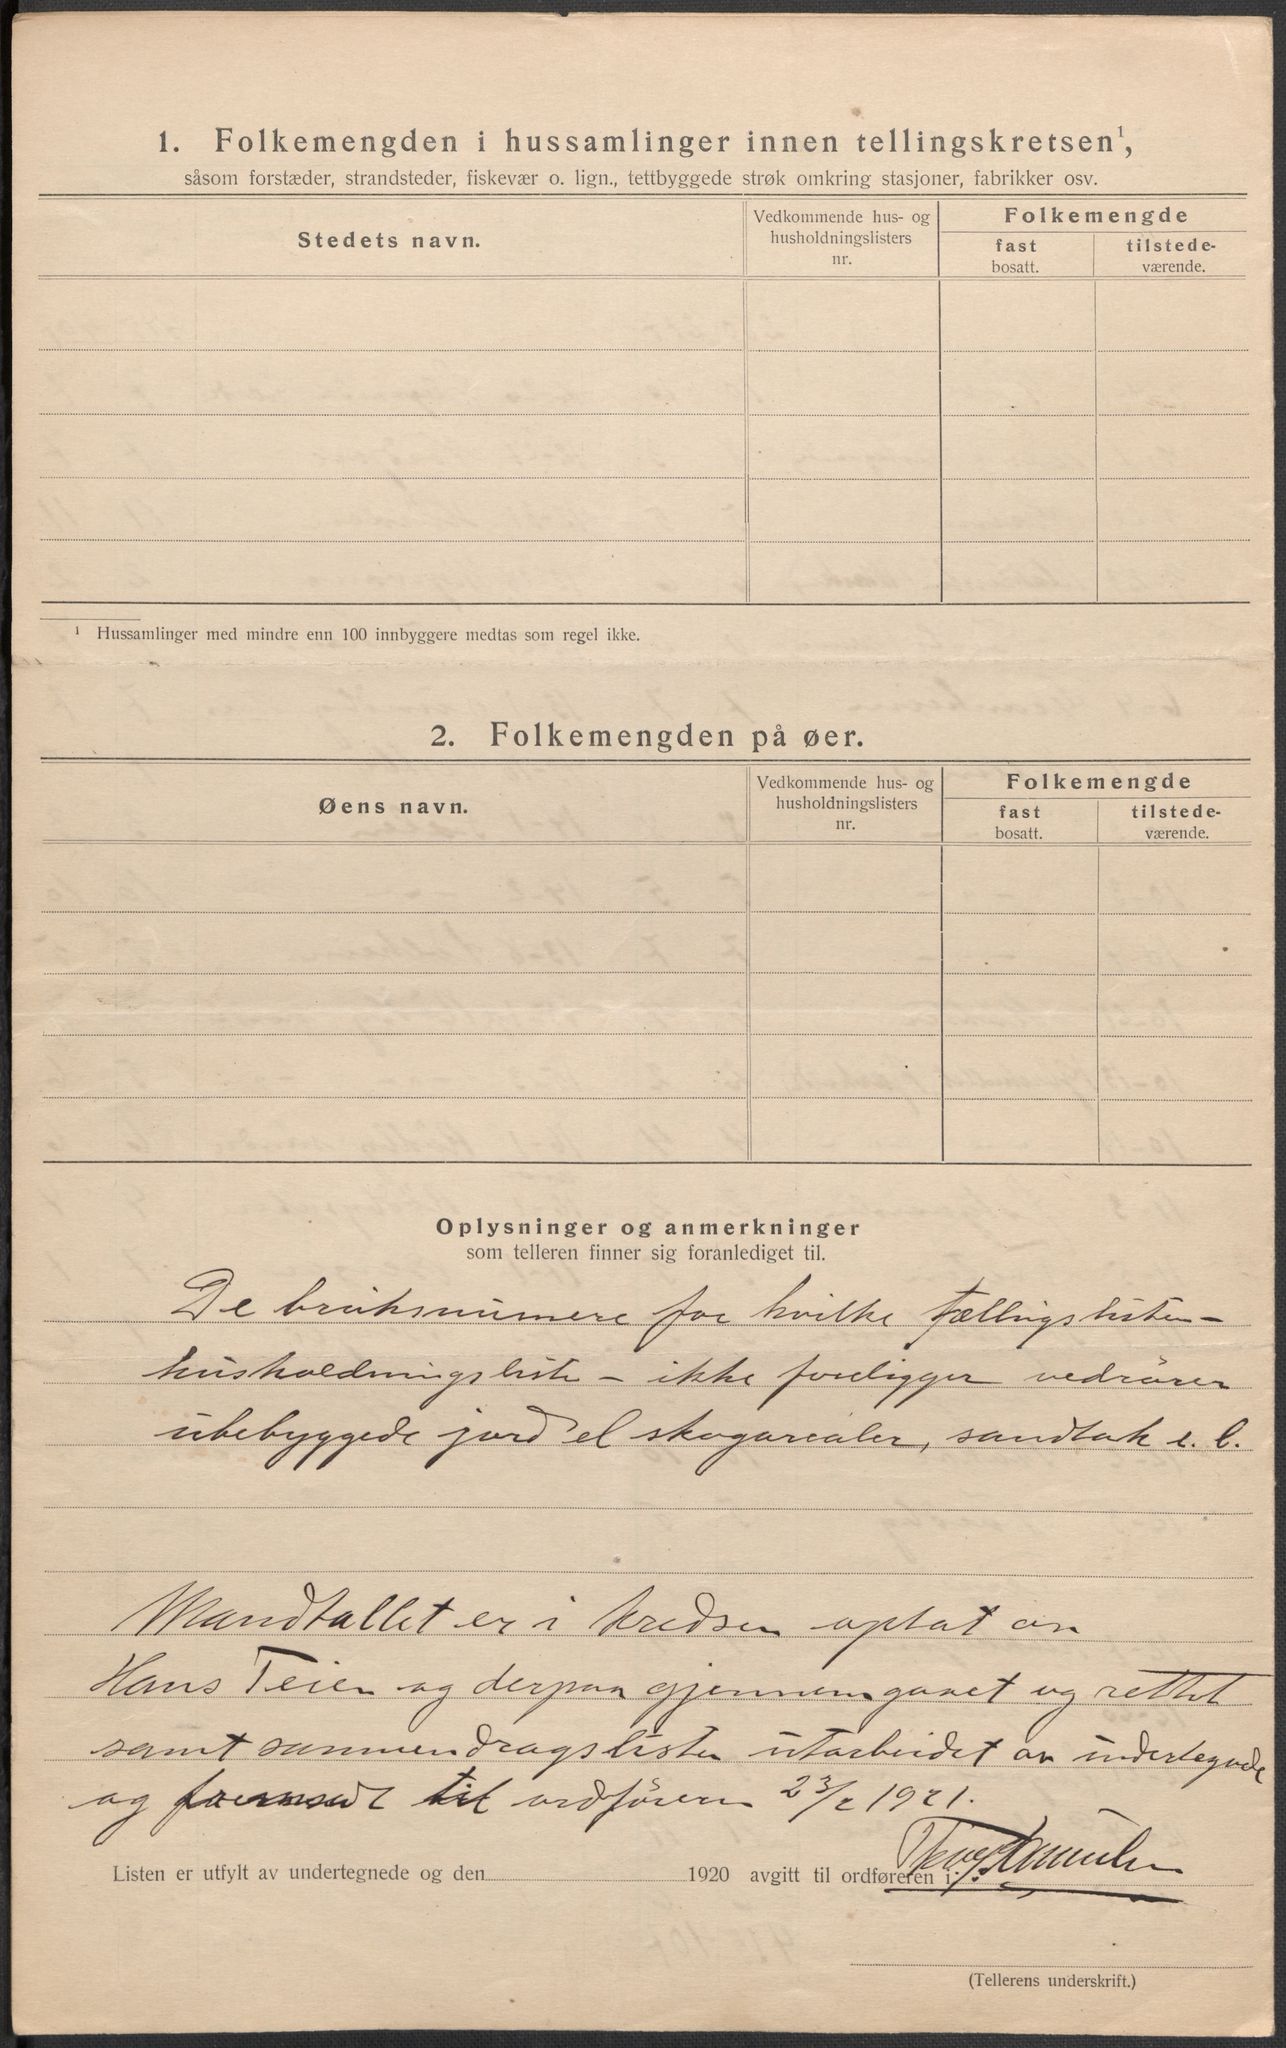 1. Folkemengden i hussamlinger innen tellingskretsen¹,
såsom forstæder, strandsteder, fiskevær o. lign., tettbyggede strøk omkring stasjoner, fabrikker osv.
Stedets navn.
Vedkommende hus- og
husholdningslisters
nr.
Folkemengde
fast
bosatt.
tilstede-
værende.
¹ Hussamlinger med mindre enn 100 innbyggere medtas som regel ikke.
2. Folkemengden på øer.
Øens navn.
Vedkommende hus- og
husholdningslisters
nr.
Folkemengde
fast
bosatt.
tilstede-
værende.
Oplysninger og anmerkninger
som telleren finner sig foranlediget til.
De bruksnumere for hvilke tællingslisten-
husholdningsliste - ikke foreligger vedrører
ubebyggede jord el skogarealer, sandtak e. l.
Mandtallet er i kredsen optat av
Hans Teien og derpaa gjennemgaaet og rettet
samt sammendragslisten utarbeidet av undertegnede
og til ordføreren 23/2 1921.
Listen er utfylt av undertegnede og den 1920 avgitt til ordføreren i
(Tellerens underskrift.)